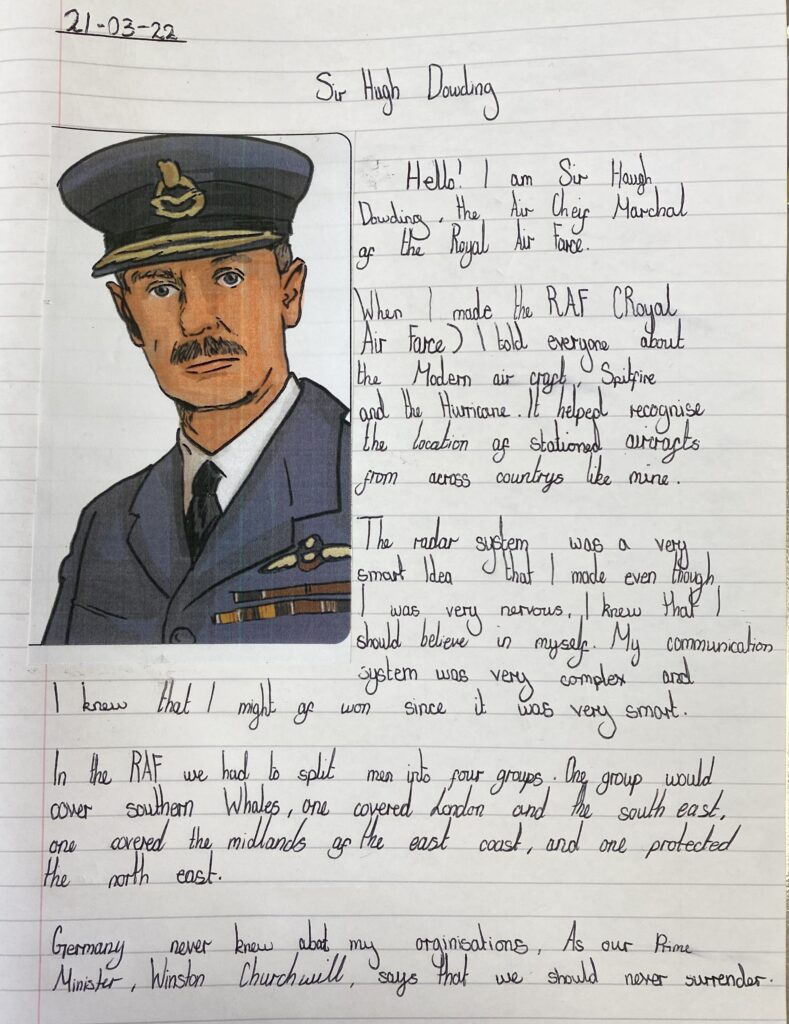 21-03-22
Sir Hugh Dowding
Hello! I am Sir Haugh
Dowding, the Air Cheif Marchal
of the Royal Air Farce.
When I made the RAF (Royal
Air Farce) I told everyone about
the Modern air craft, Spitfire
and the Hurricane. It helped recognise
the location of stationed aircrafts
from across countrys like mine.
The radar system was a very
smart Idea that I made even though
I was very nervous, I knew that I
should believe in myself. My communication
system was very complex and
I knew that I might of won since it was very smart.
In the RAF we had to split men into four groups. One group would
cover southern Whales, one covered London and the south east,
one covered the midlands of the east coast, and one protected
the north east.
Germany never knew abat my orginisations, As our Prime
Minister, Winston Churchwill, says that we should never surrender.